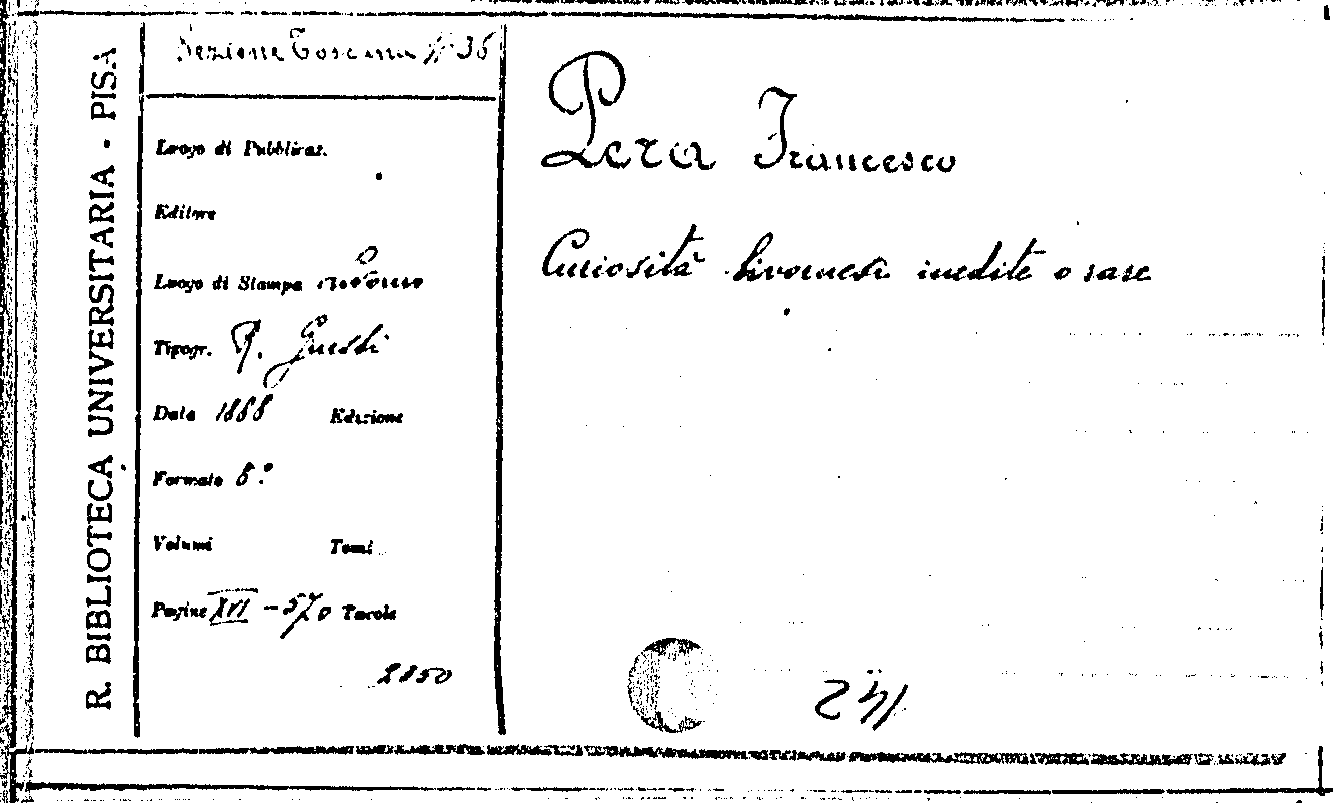 R. BIBLIOTECA UNIVERSITARIA - PISA
Sezione Toscana # 36
Luogo di Pubblicaz.
Editore
Luogo di Stampa Livorno
Tipogr. R. Giusti
Data 1888 Edizione
Formato 8.°
Volumi Tomi
Pagine XVI - 570 Tavole
2850
Pera Francesco
Curiosità livornesi inedite o rare